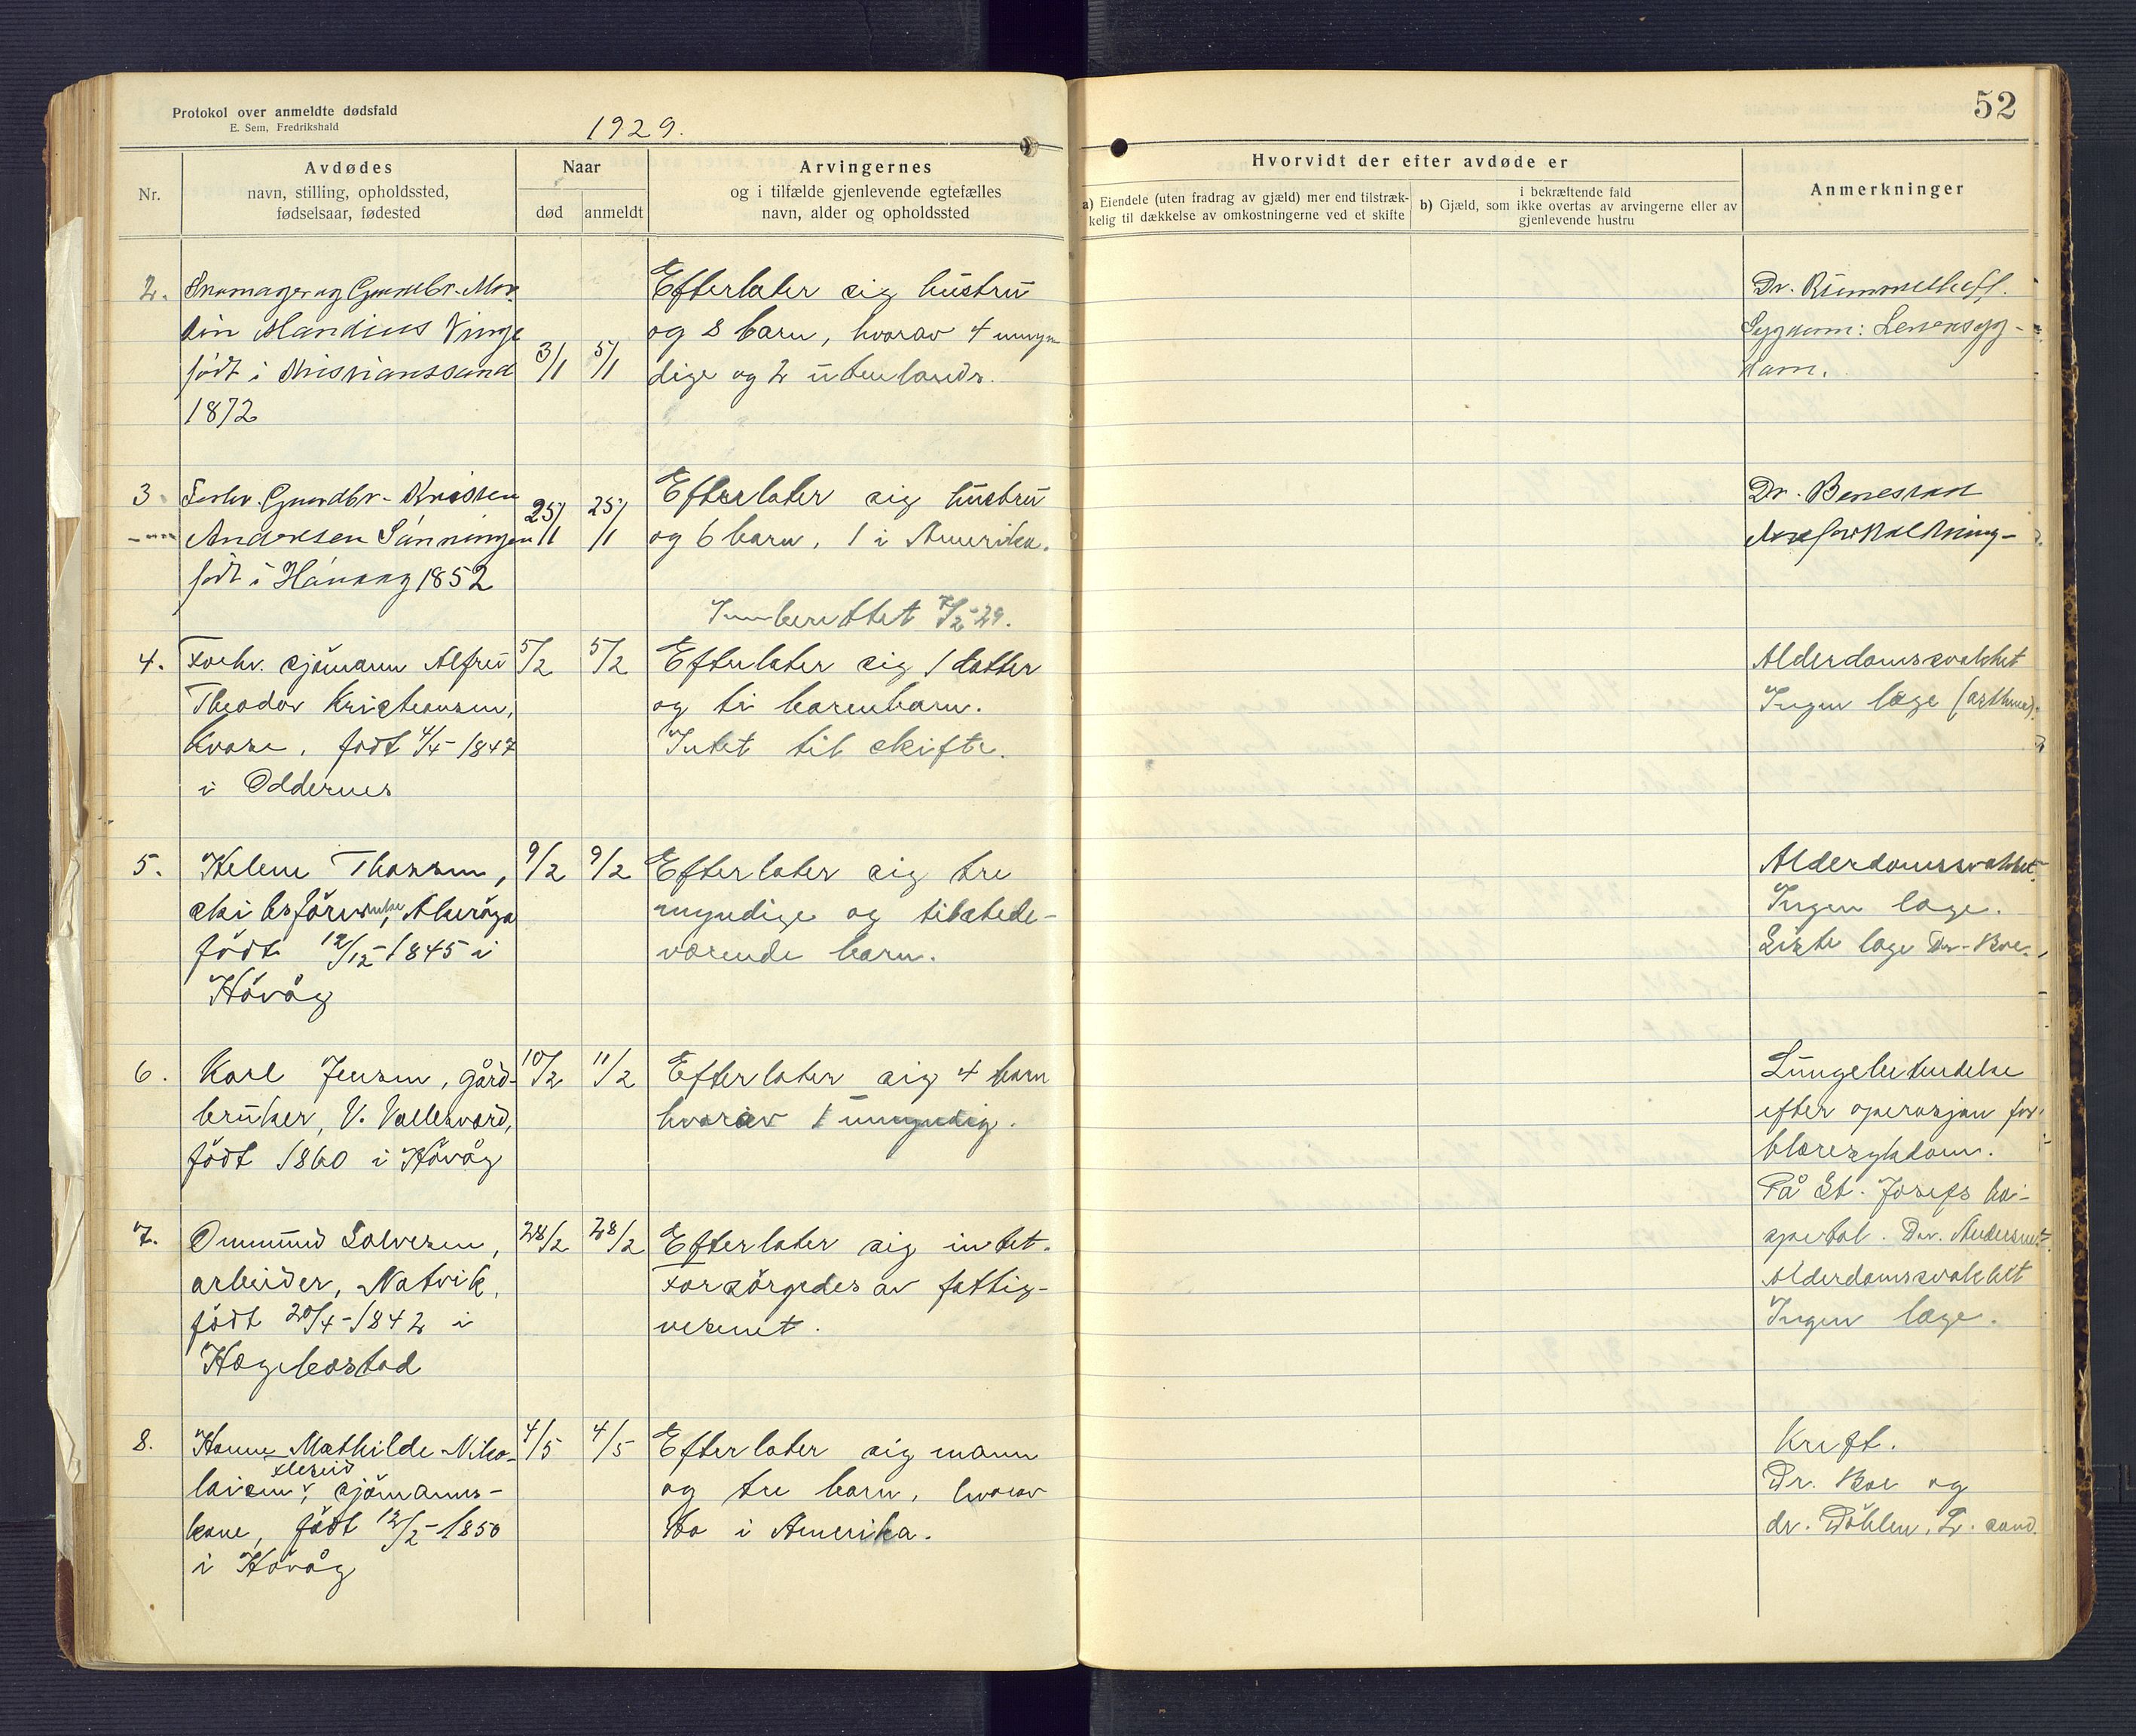 Protokol over anmeldte dødsfald
E. Sem, Fredrikshald
1929.
52
Nr.
Avdødes
navn, stilling, opholdssted,
fødselsaar, fødested
Naar
død
anmeldt
Arvingernes
og i tilfælde gjenlevende egtefælles
navn, alder og opholdssted
Hvorvidt der efter avdøde er
a) Eiendele (uten fradrag av gjæld) mer end tilstræk-
kelig til dækkelse av omkostningerne ved et skifte
i bekræftende fald
b) Gjæld, som ikke overtas av arvingerne eller av
gjenlevende hustru
Anmerkninger
2.
Skomager og Gaardbr. Mar-
tin Vinge
født i Kristianssand
1872
3/1
5/1
Efterlater sig hustru
og 8 barn, hvorav 4 umyn
dige og 2 utenlands.
Dr. Rummelhoff.
Sygdom:
dom.
3
Forhv. Gaardbr. Kristen
Andersen Sånningen
født i Høvaag 1852
25/1
25/1
Efterlater sig hustru
og 6 barn, 1 i Amerika.
Dr. Benestad
Innberettet 7/2-29.
4.
Forhv. sjömann Alfred
Theodor Kristensen,
Kvase, født 4/4-1847
i Oddernes
5/2
5/2
Efterlater sig 1 datter
og ti barnebarn.
Intet til skifte.
Alderdomssvakhet
Ingen læge (asthma).
5.
Helene Thorsen,
skibsförerenke, Akeröya
födt 12/12-1845 i
Hövåg
9/2
9/2
Efterlater sig tre
myndige og tilstede-
værende barn.
Alderdomssvakhet.
Ingen læge.
Siste læge Dr. Boe.
6.
Karl Jensen, gård-
bruker, V. Vallesverd,
födt 1860 i Hövåg
10/2
11/2
Efterlater sig 4 barn
hvorav 1 umyndig.
Lungebetendelse
efter operasjon for
blæresykdom.
På St. Josefs ho-
spital. Dr. Andersen.
7.
Ommund Salvesen,
arbeider, Natvik,
födt 20/4-1842 i
Hægebostad
28/2
28/2
Efterlater sig intet.
Forsörgedes av fattig-
vesenet.
Alderdomssvakhet
Ingen læge.
8.
Hanne Mathilde Niko-
laisen, sjömanns-
kone, födt 12/2-1850
i Hövåg
4/5
4/5
Efterlater sig mann
og tre barn, hvorav
to i Amerika.
Kreft.
Dr. Boe og
dr. Döhlen, L. sand.